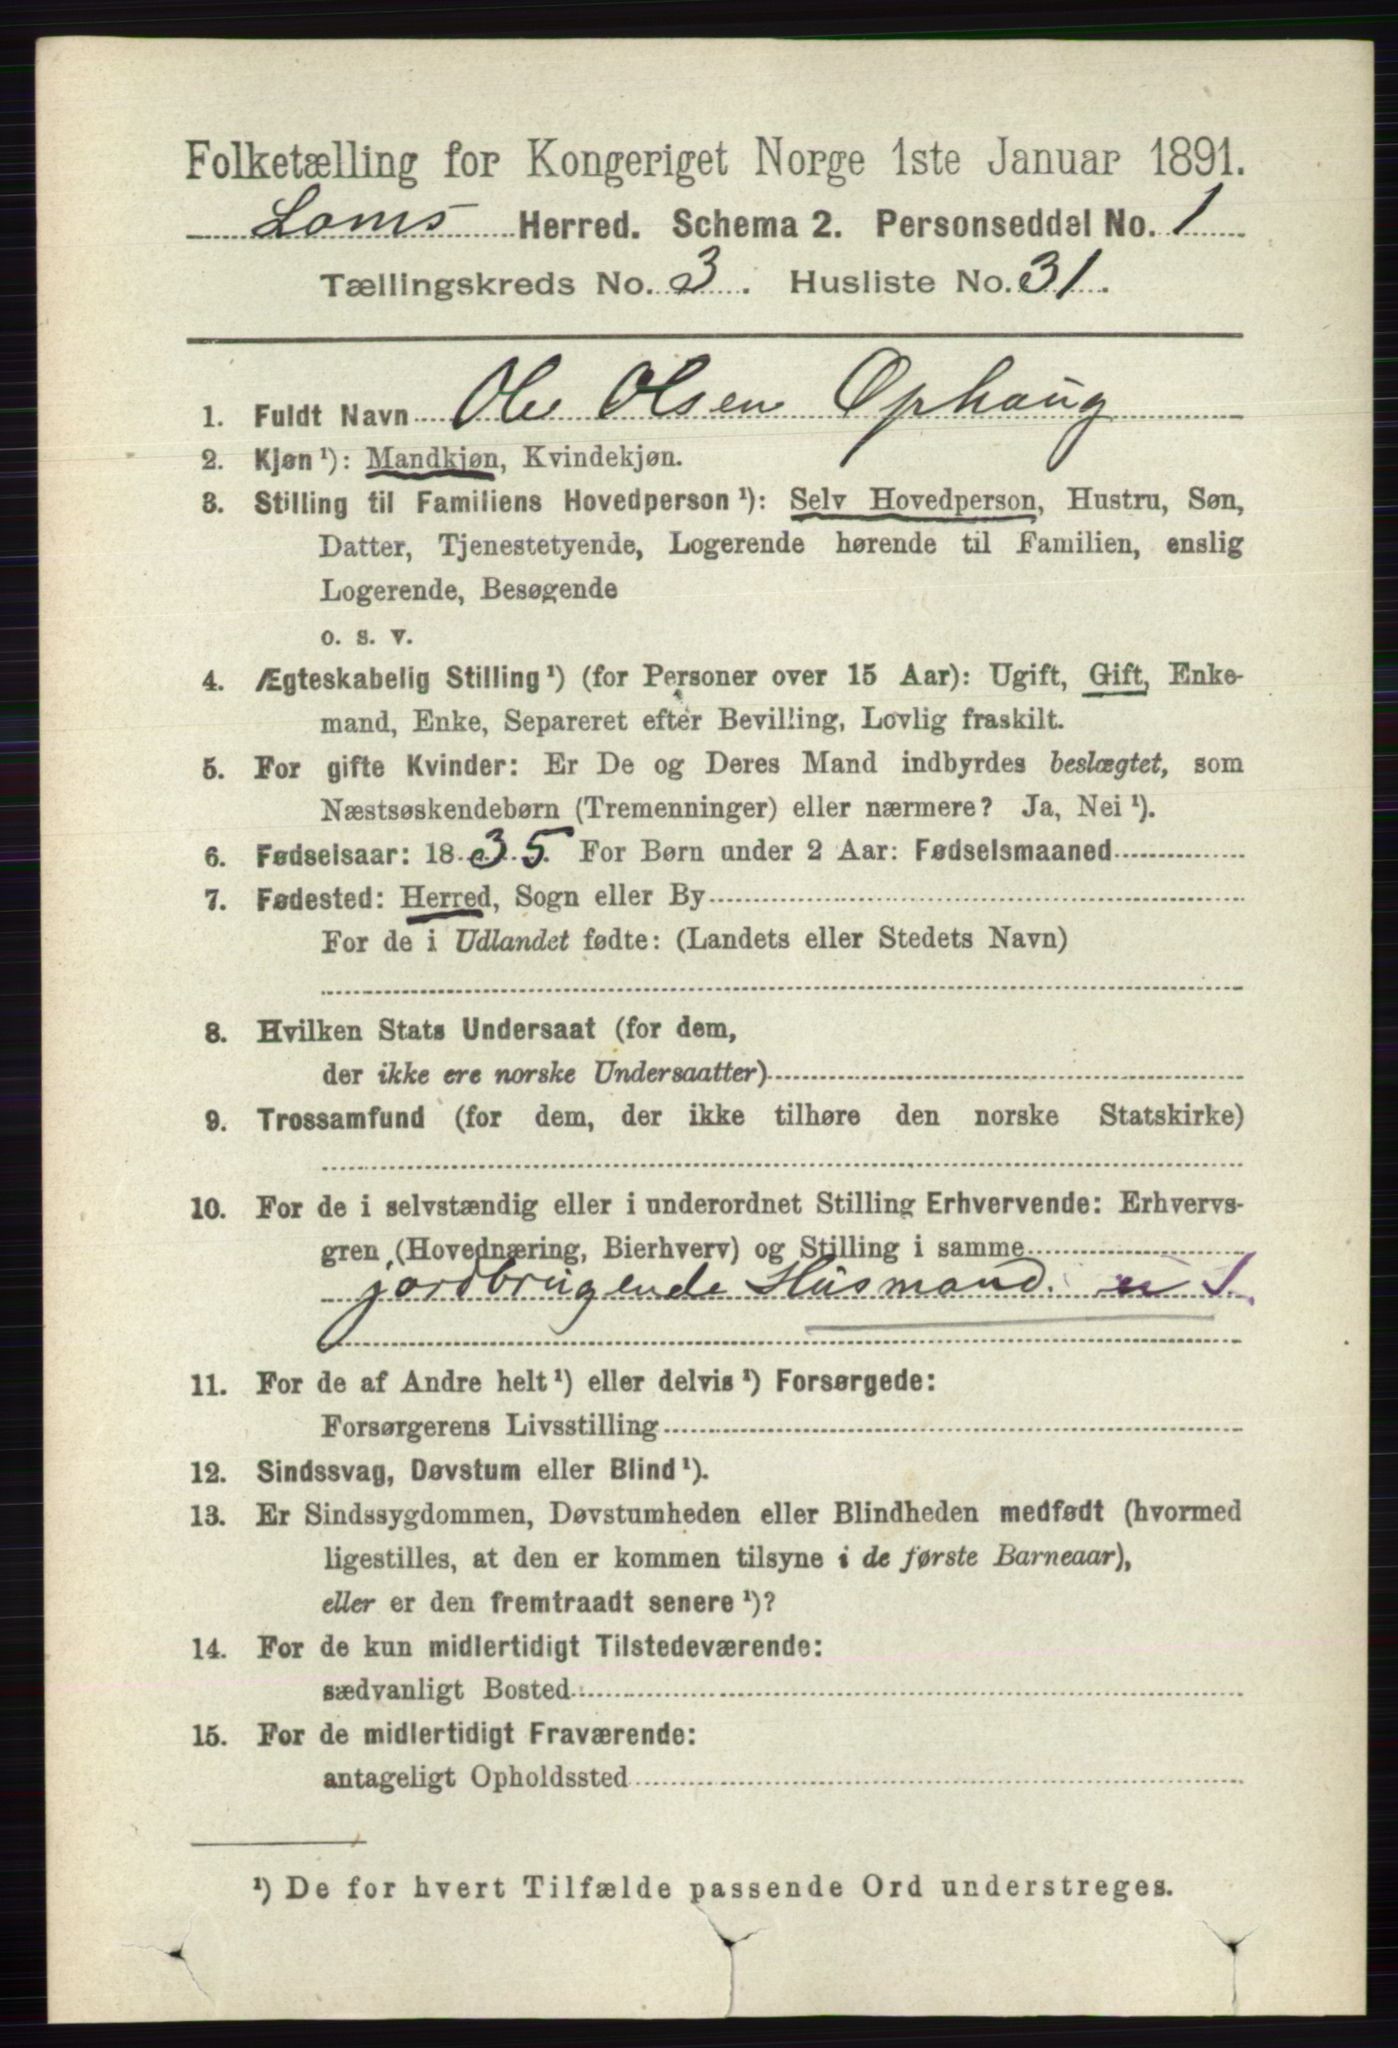 Folketælling for Kongeriget Norge 1ste Januar 1891.
Loms Herred. Schema 2. Personseddel No. 1
Tællingskreds No. 3. Husliste No. 31.
1. Fuldt Navn Ole Olsen Ophaug
2. Kjøn ¹): Mandkjøn, Kvindekjøn.
3. Stilling til Familiens Hovedperson ¹): Selv Hovedperson, Hustru, Søn,
Datter, Tjenestetyende, Logerende hørende til Familien, enslig
Logerende, Besøgende
o. s. v.
4. Ægteskabelig Stilling ¹) (for Personer over 15 Aar): Ugift, Gift, Enke-
mand, Enke, Separeret efter Bevilling, Lovlig fraskilt.
5. For gifte Kvinder: Er De og Deres Mand indbyrdes beslægtet, som
Næstsøskendebørn (Tremenninger) eller nærmere? Ja, Nei ¹).
6. Fødselsaar: 1835. For Børn under 2 Aar: Fødselsmaaned
7. Fødested: Herred, Sogn eller By
For de i Udlandet fødte: (Landets eller Stedets Navn)
8. Hvilken Stats Undersaat (for dem,
der ikke ere norske Undersaatter)
9. Trossamfund (for dem, der ikke tilhøre den norske Statskirke)
10. For de i selvstændig eller i underordnet Stilling Erhvervende: Erhvervs-
gren (Hovednæring, Bierhverv) og Stilling i samme
jordbrugende Husmand.
11. For de af Andre helt ¹) eller delvis ¹) Forsørgede:
Forsørgerens Livsstilling
12. Sindssvag, Døvstum eller Blind ¹).
13. Er Sindssygdommen, Døvstumheden eller Blindheden medfødt (hvormed
ligestilles, at den er kommen tilsyne i de første Barneaar),
eller er den fremtraadt senere ¹)?
14. For de kun midlertidigt Tilstedeværende:
sædvanligt Bosted
15. For de midlertidigt Fraværende:
antageligt Opholdssted
¹) De for hvert Tilfælde passende Ord understreges.